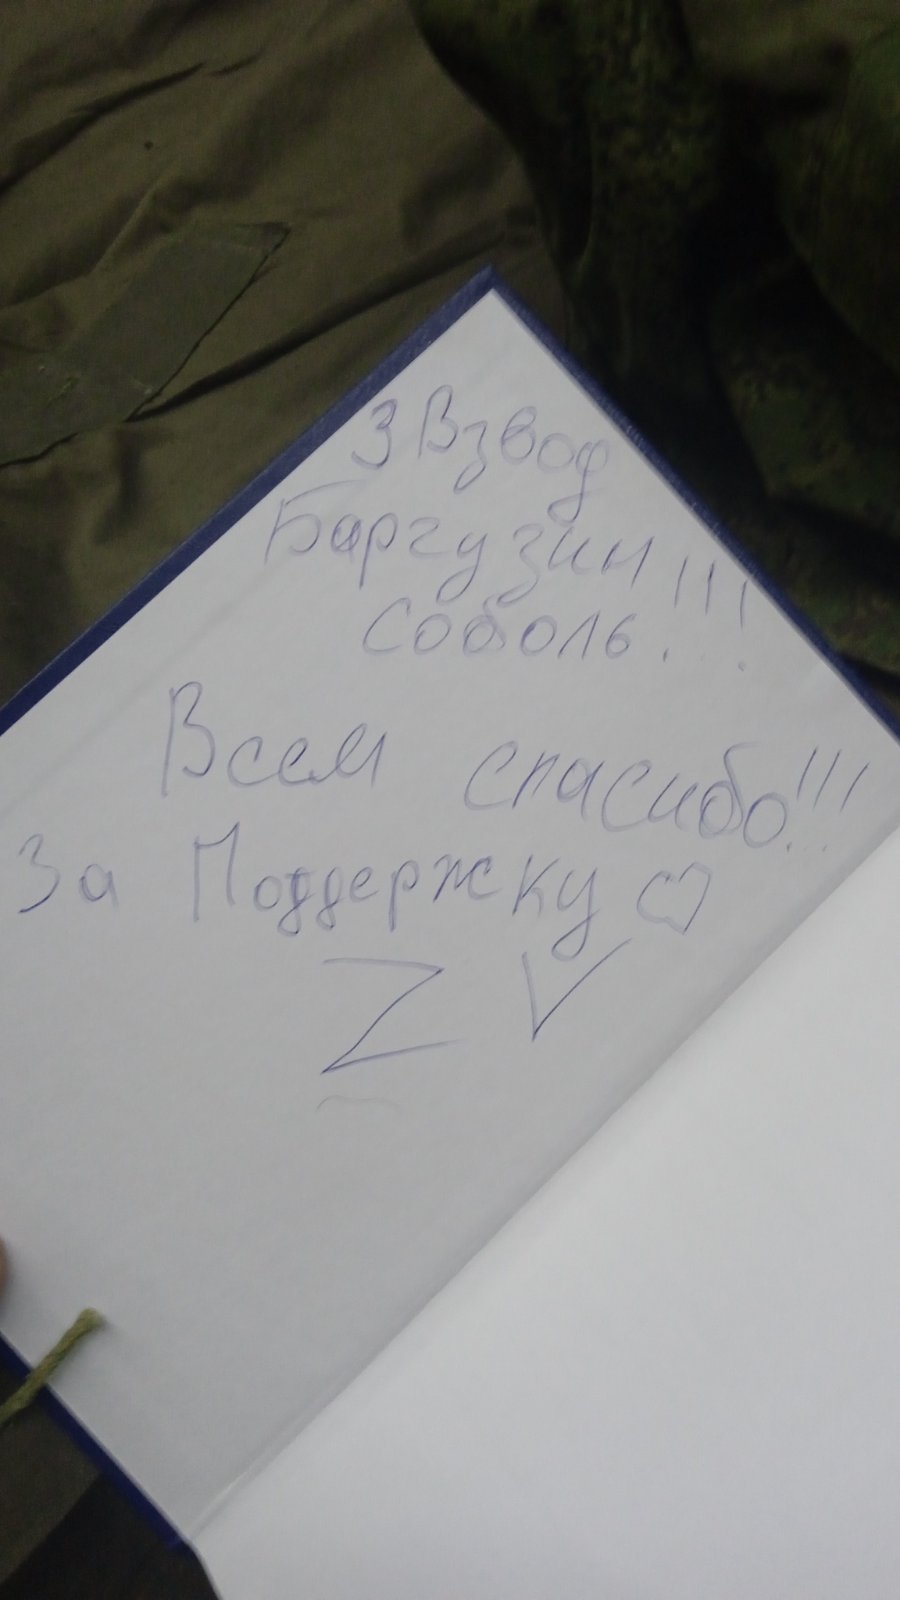 3 Взвод
Баргузин!!!
соболь!!!
Всем спасибо!!!
За Поддержку
Z V